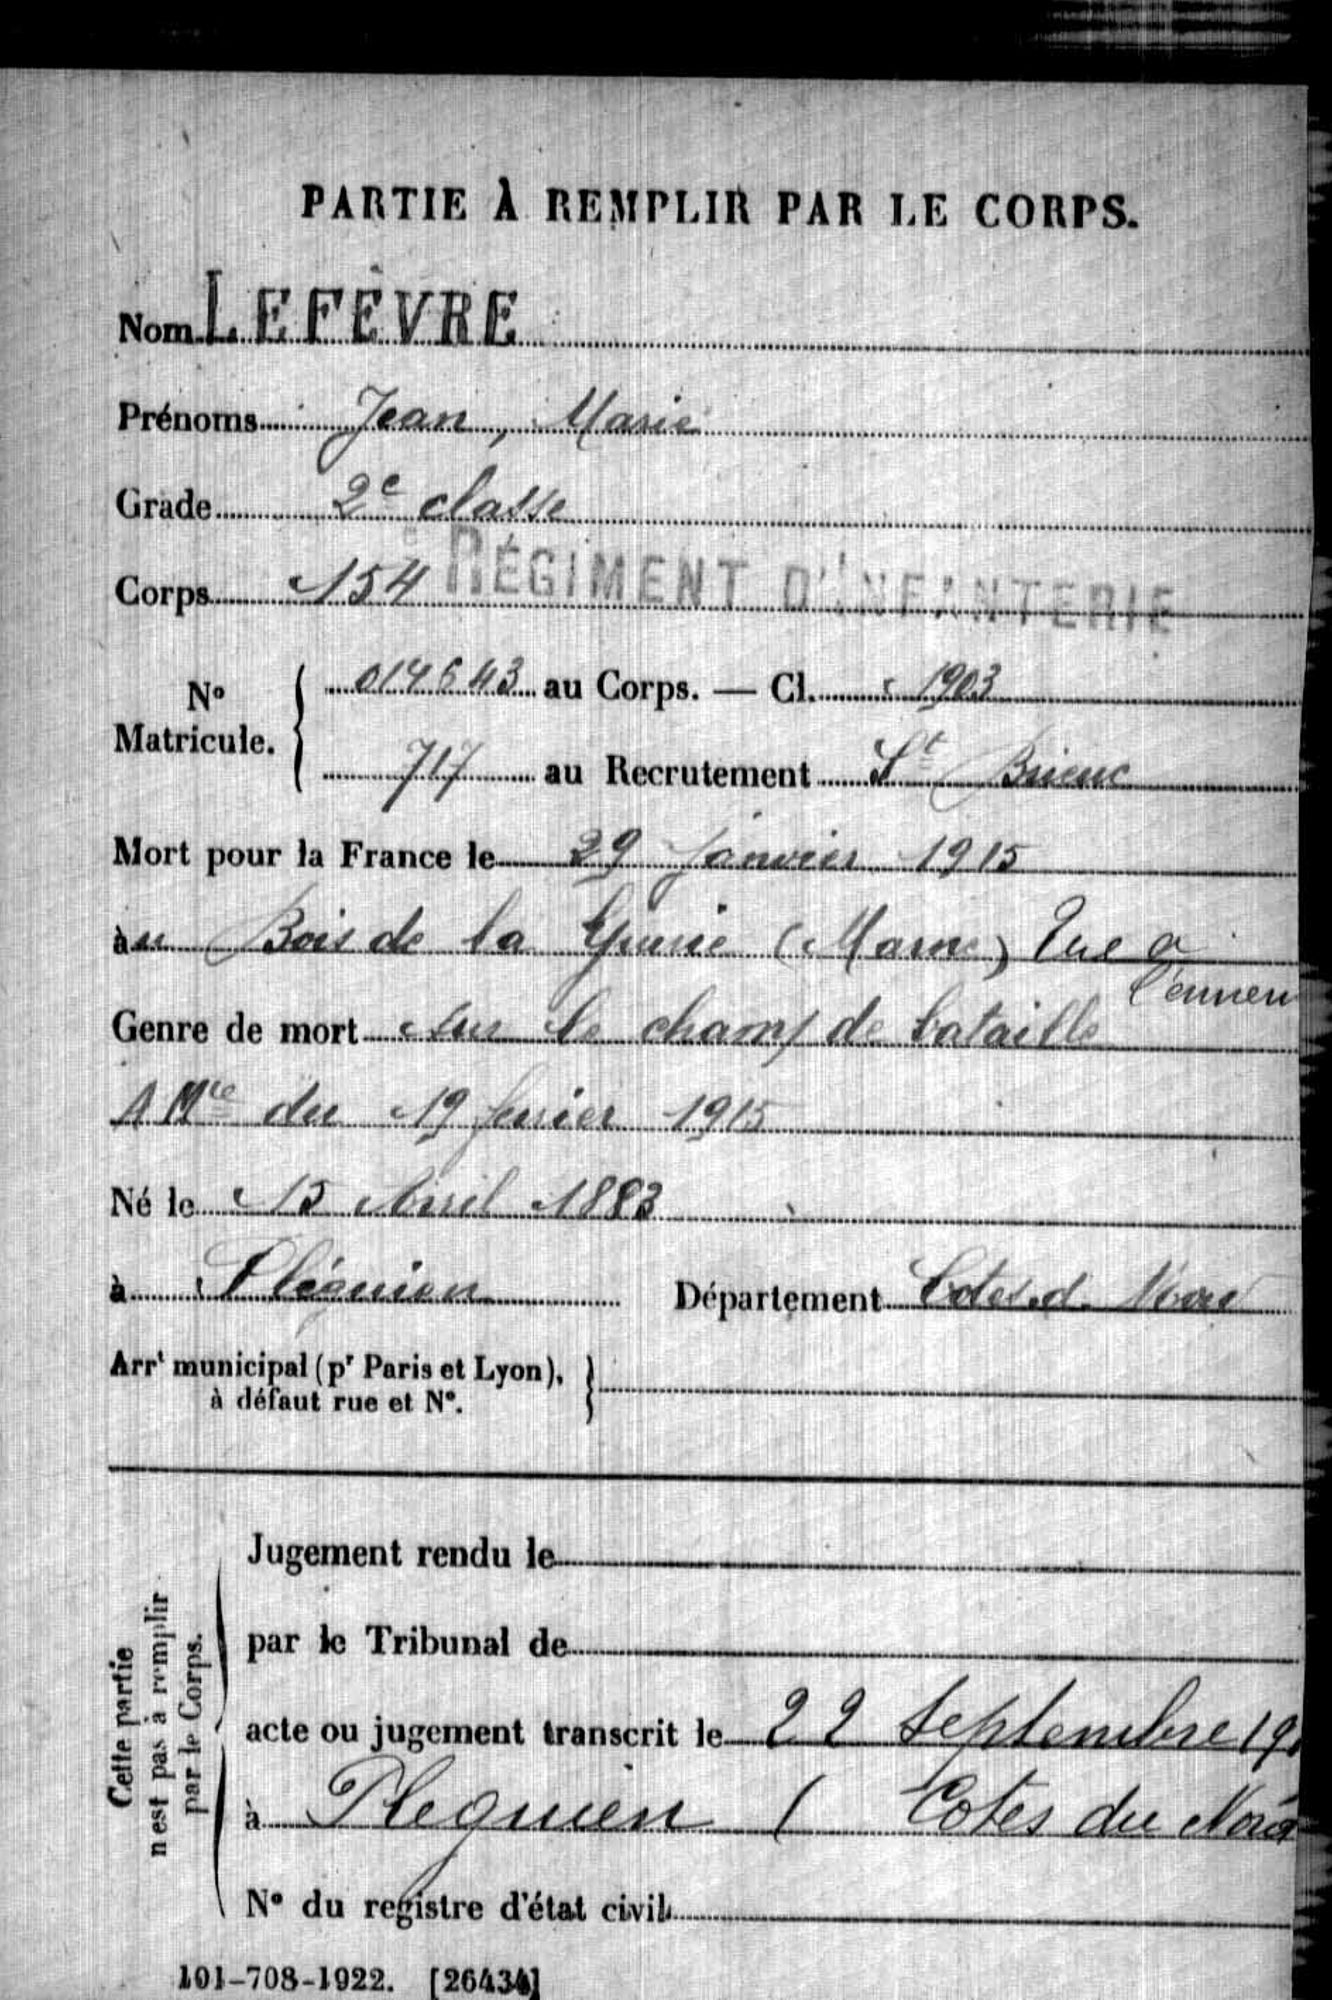 PARTIE À REMPLIR PAR LE CORPS.
Nom LEFÈVRE
Prénoms Jean, Marie
Grade 2e classe
Corps 154 RÉGIMENT D'INFANTERIE
No Matricule. { 014643 au Corps. — Cl. 1903
717 au Recrutement St Brieuc
Mort pour la France le 29 janvier 1915
au Bois de la Grurie (Marne) Tué a
l'ennemi
Genre de mort sur le champ de bataille
A Mel du 19 fevrier 1915
Né le 15 Avril 1883
à Pléguien Département Cotes d. Nord
Arrt municipal (pr Paris et Lyon),
à défaut rue et No. }
Cette partie
n'est pas à remplir
par le Corps.
Jugement rendu le
par le Tribunal de
acte ou jugement transcrit le 22 Septembre 19
à Pleguien ( Cotes du Nord
No du registre d'état civil
101-708-1922. [26434]